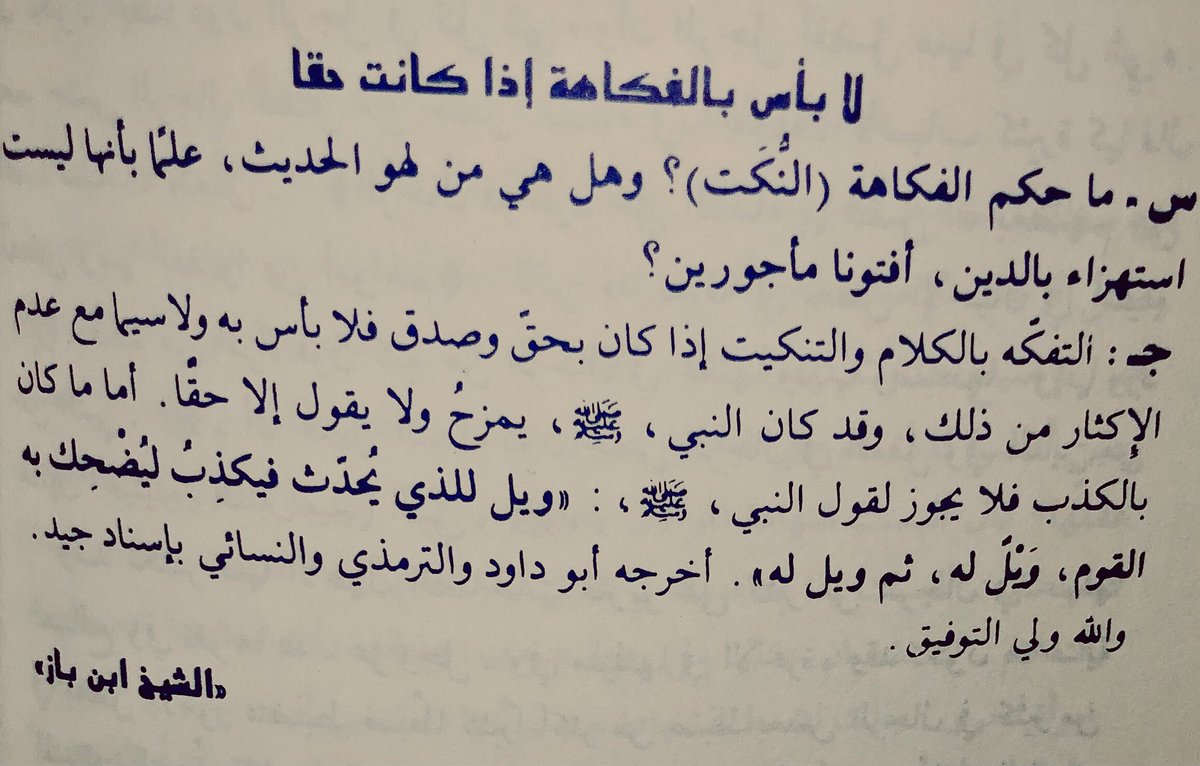 لا بأس بالفكاهة إذا كانت حقا
س - ما حكم الفكاهة (النُّكَت)؟ وهل هي من لهو الحديث، علمًا بأنها ليست
استهزاء بالدين، أفتونا مأجورين؟
جـ : التفكّه بالكلام والتنكيت إذا كان بحقّ وصدق فلا بأس به ولاسيما مع عدم
الإِكثار من ذلك، وقد كان النبي، ﷺ، يمزحُ ولا يقول إلا حقًّا. أما ما كان
بالكذب فلا يجوز لقول النبي، ﷺ، : «ويل للذي يُحدّث فيكذِبُ ليُضْحِك به
القوم، وَيْلٌ له، ثم ويل له». أخرجه أبو داود والترمذي والنسائي بإسناد جيد.
والله ولي التوفيق.
«الشيخ ابن باز»